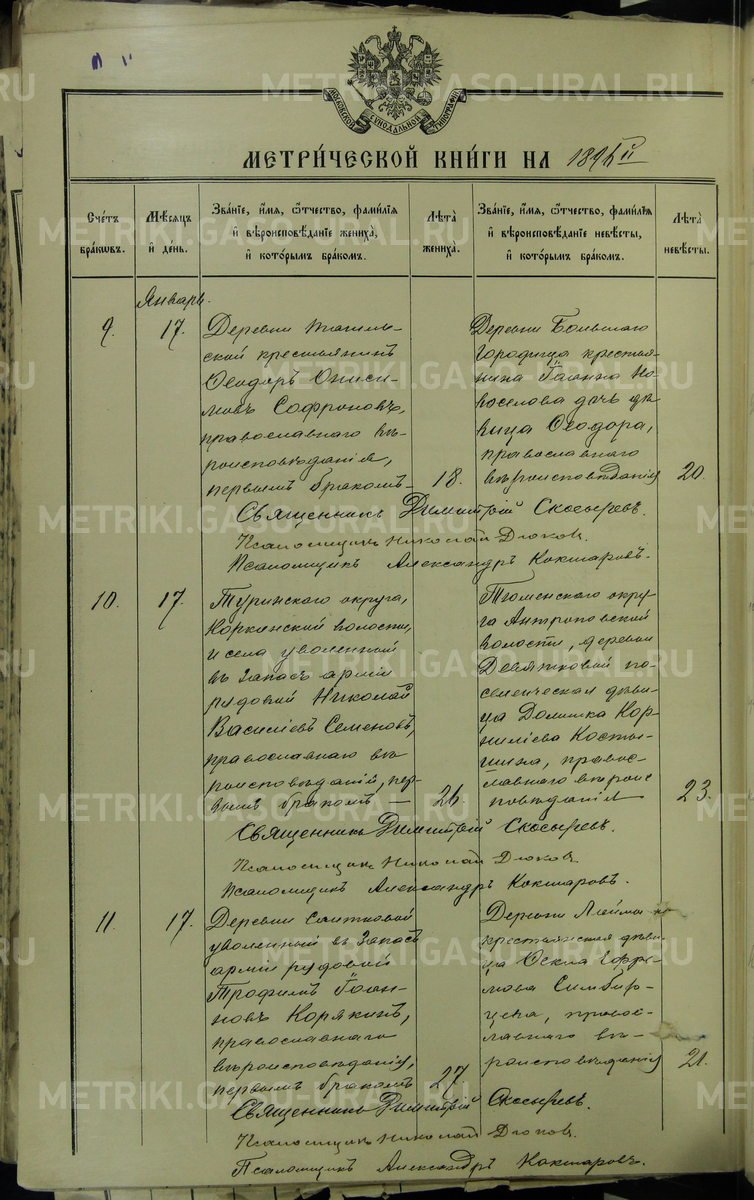 МОСКОВСКОЙ СѴНОДАЛЬНОЙ ТИПОГРАФІИ
МЕТРИ́ЧЕСКОЙ КНИ́ГИ НА 189
Сче́тъ бра́кѡвъ.
Мѣ́сѧцъ и҆ де́нь.
Зва́нїе, и҆́мѧ, ѻ҆́тчество, фами́лїѧ
и҆ вѣроисповѣ́данїе жениха̀,
и҆ кото́рымъ бра́комъ.
Лѣ́та̀ жениха̀.
Зва́нїе, и҆́мѧ, ѻ҆́тчество, фами́лїѧ
и҆ вѣроисповѣ́данїе невѣ́сты,
и҆ кото́рымъ бра́комъ.
Лѣ́та̀ невѣ́сты.
Январь.
9. 17.
Деревни Тагиль-
ской крестьянинъ
Ѳеодоръ Ониси-
мовъ Софроновъ,
православнаго вѣ-
роисповѣданія,
первымъ бракомъ- 18.
Деревни Большаго
Городища крестья-
нина Іоанна Но-
воселова дочь дѣ-
вица Ѳеодора,
православнаго
вѣроисповѣданія 20.
Священникъ Димитрій Скосыревъ.
Псаломщикъ Николай Дюковъ.
Псаломщикъ Александръ Кокшаровъ.
10. 17.
Туринскаго округа,
Коркинской волости,
и села уволенный
въ запасъ арміи
рядовой Николай
Василіевъ Семеновъ,
православнаго вѣ-
роисповѣданія, пер-
вымъ бракомъ — 26.
Тюменскаго окру-
га Антроповской
волости, деревни
Девятковой по-
селенческая дѣви-
ца Домника Кор-
ниліева Косты-
шина, правос-
лавнаго вѣроис
повѣданія 23.
Священникъ Димитрій Скосыревъ.
Псаломщикъ Николай Дюковъ.
Псаломщикъ Александръ Кокшаровъ.
11. 17.
Деревни
уволенный въ запасъ
арміи рядовой
Трофимъ Іоан-
новъ Корякинъ,
православнаго
вѣроисповѣданія,
первымъ бракомъ 27
Деревни
крестьянская дѣви-
ца Ефре-
мова Симбир-
цева, правос-
лавнаго вѣ-
роисповѣданія 21.
Священникъ Димитрій Скосыревъ.
Псаломщикъ Николай Дюковъ.
Псаломщикъ Александръ Кокшаровъ.
METRIKI.GASO-URAL.RU